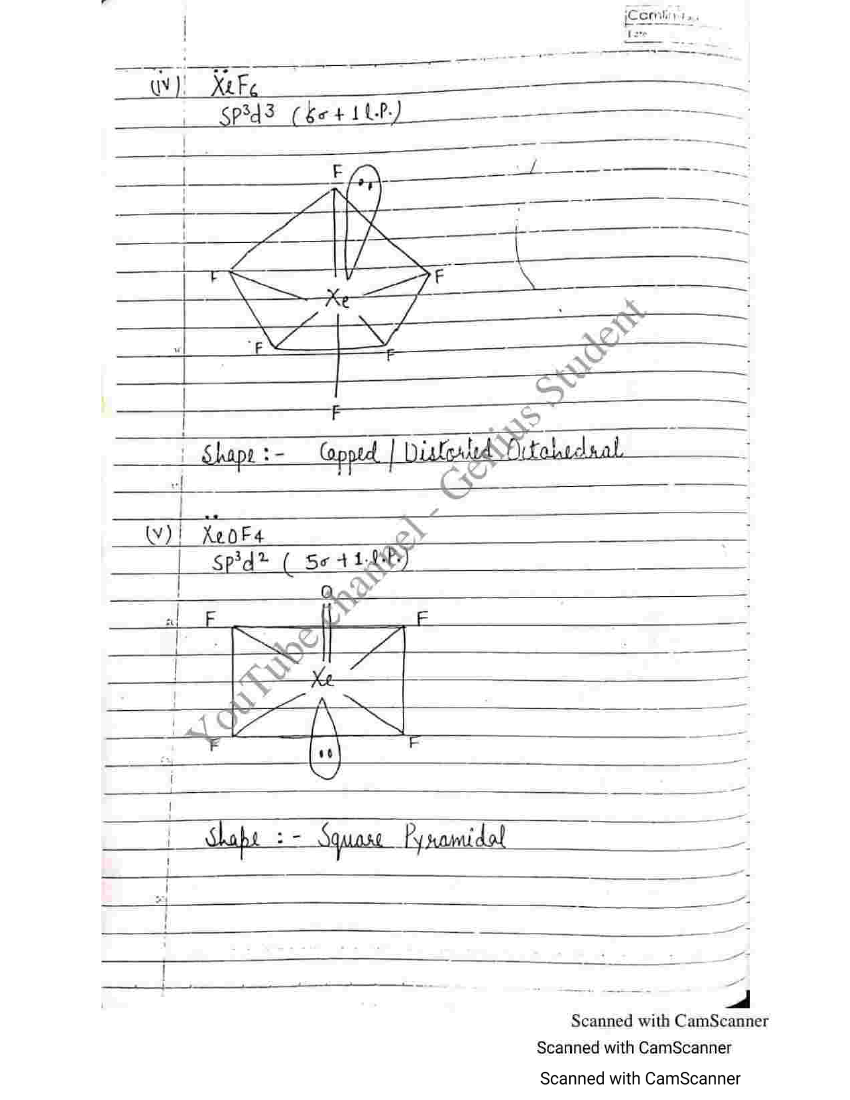 (iv) ẌeF₆
SP³d³ (6σ + 1 l.P.)
F
F
F
Xe
F
F
F
Shape :- Capped / Distorted Octahedral
(v) ẌeOF4
SP³d² ( 5σ + 1.l.P.)
O
F
F
Xe
F
F
Shape :- Square Pyramidal
YouTube channel - Genius Student
Scanned with CamScanner
Scanned with CamScanner
Scanned with CamScanner